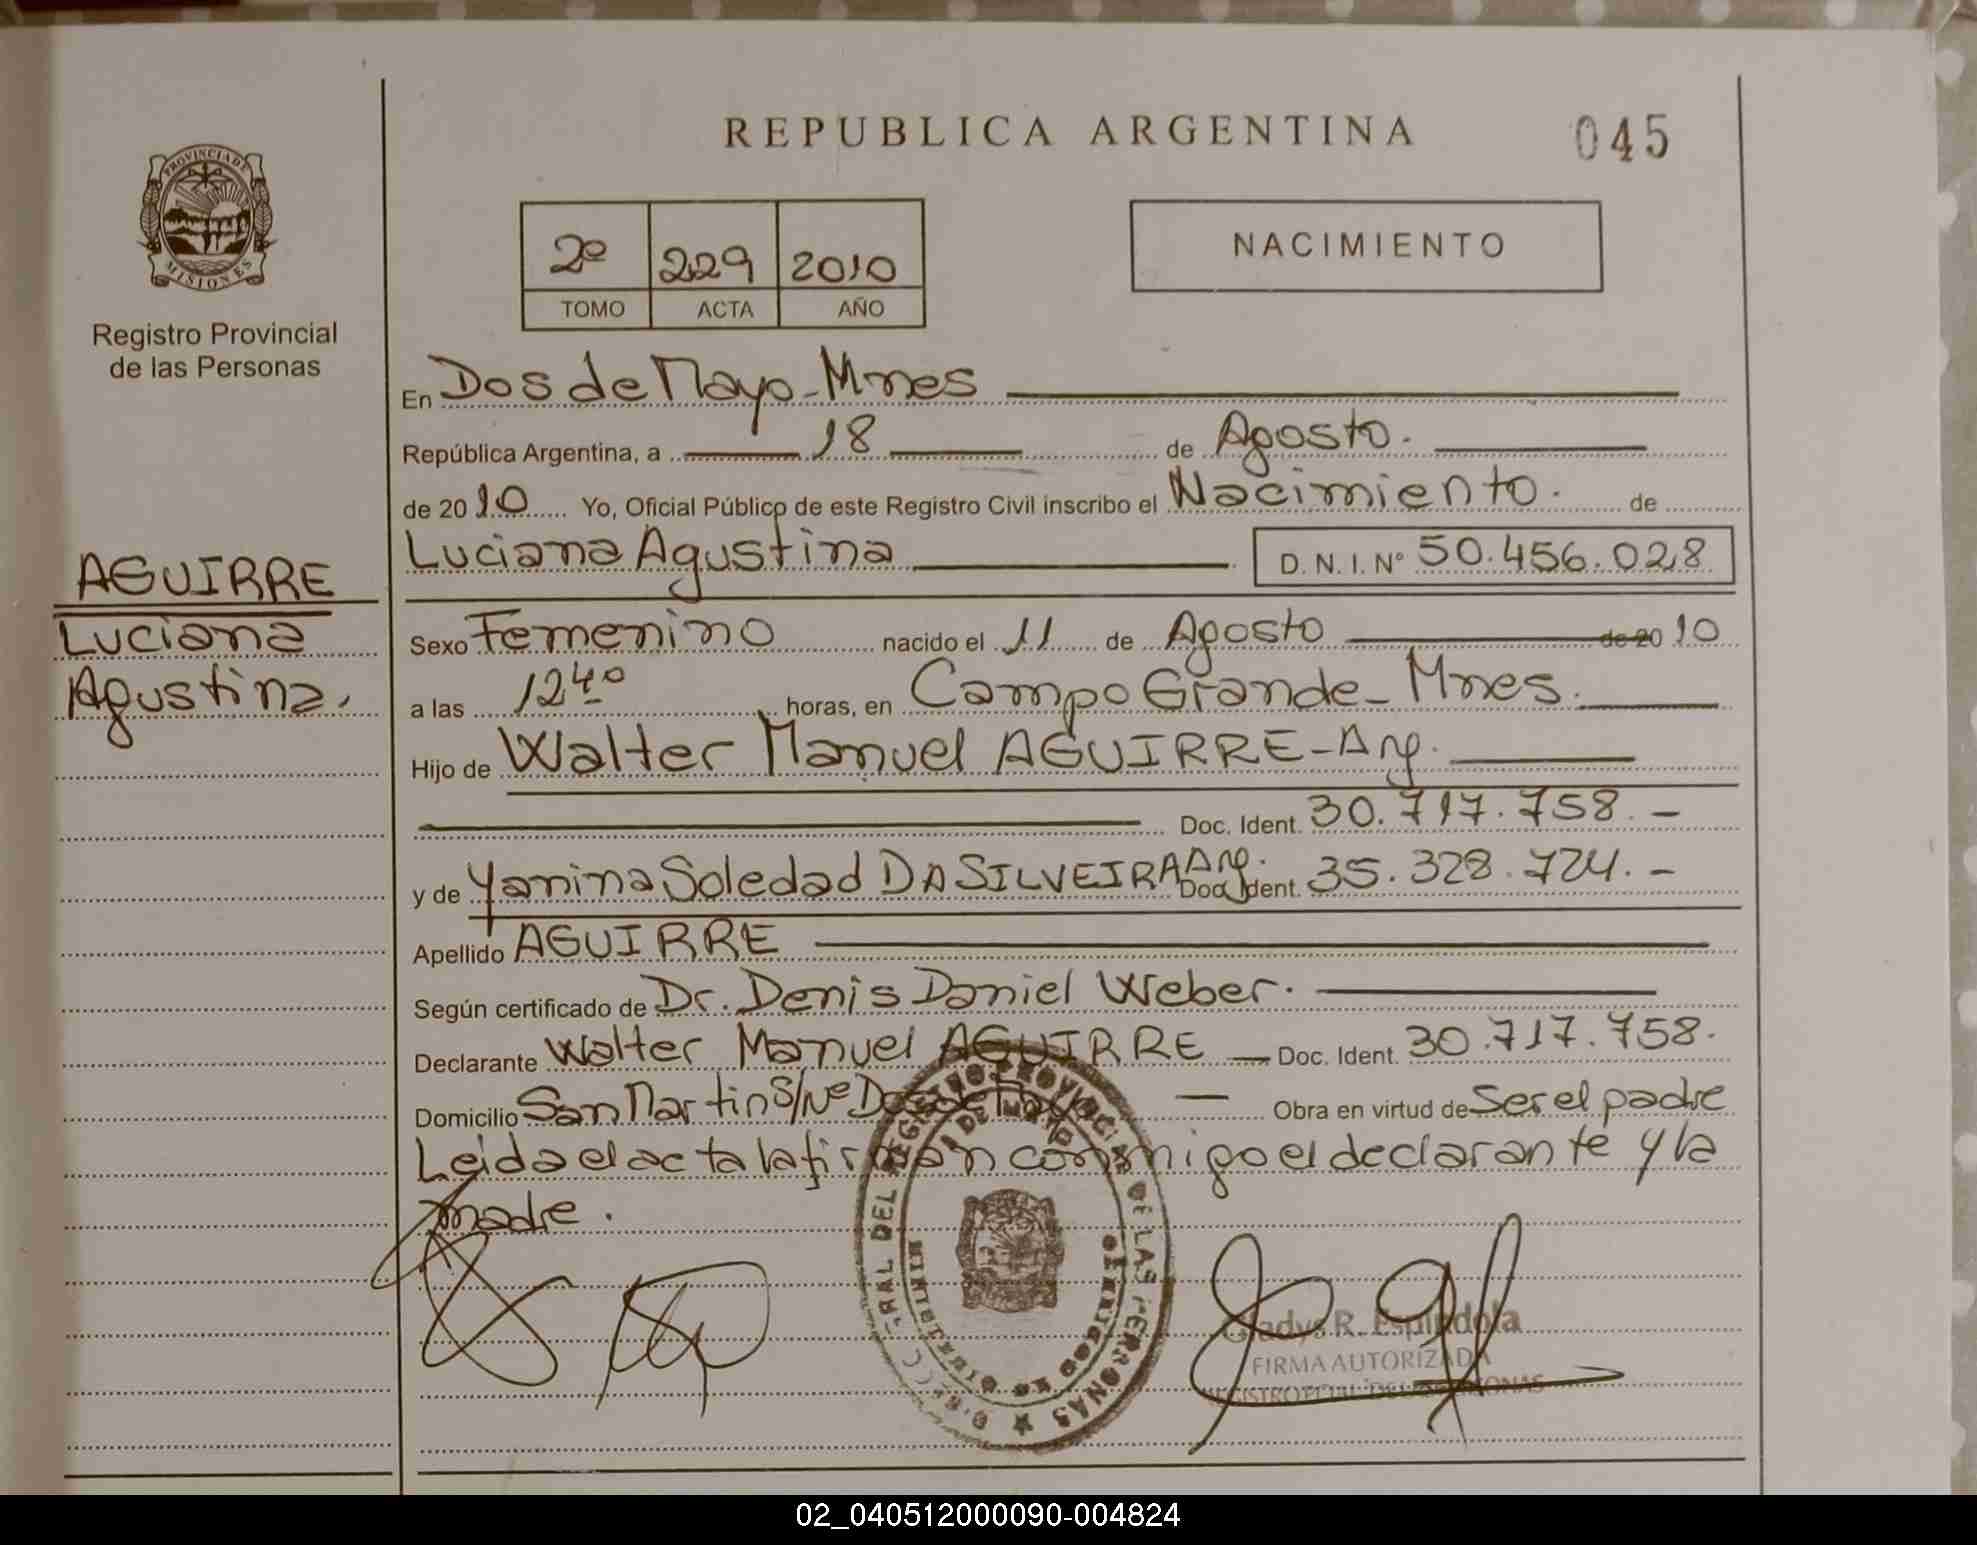 REPUBLICA ARGENTINA
045
PROVINCIA DE
MISIONES
Registro Provincial
de las Personas
2º 229 2010
TOMO ACTA AÑO
NACIMIENTO
En Dos de Mayo - Mnes
República Argentina, a 18 de Agosto.
de 2010 Yo, Oficial Público de este Registro Civil inscribo el Nacimiento. de
Luciana Agustina D. N. I. Nº 50.456.028
AGUIRRE
Luciana
Agustina.
Sexo Femenino nacido el 11 de Agosto de 2010
a las 12⁴⁰ horas, en Campo Grande - Mnes.
Hijo de Walter Manuel AGUIRRE - Arg.
Doc. Ident. 30.717.758.-
y de Yanina Soledad DA SILVEIRA Arg. Doc. Ident. 35.328.724.-
Apellido AGUIRRE
Según certificado de Dr. Denis Daniel Weber.
Declarante Walter Manuel AGUIRRE — Doc. Ident. 30.717.758.
Domicilio San Martin S/Nº Dos de Mayo — Obra en virtud de Ser el padre
Leida el acta la firman conmigo el declarante y la
madre.
REGISTRO PROVINCIAL DE LAS PERSONAS
Gladys R. Espindola
FIRMA AUTORIZADA
02_040512000090-004824